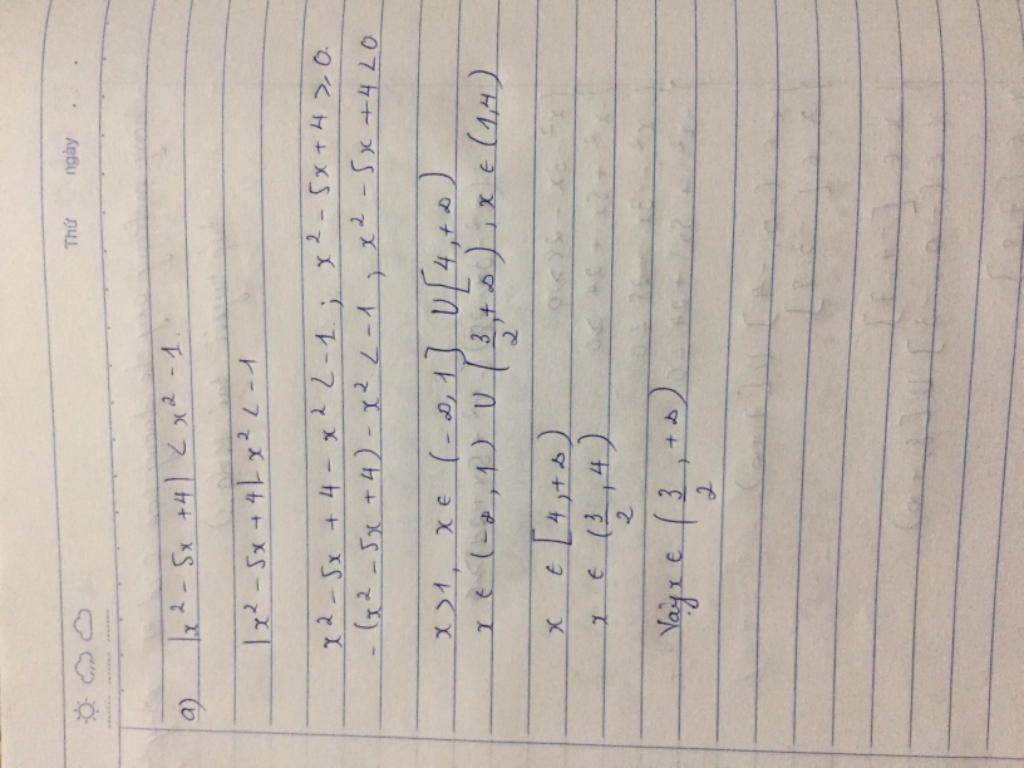 Thứ ngày
a) |x² - 5x + 4| < x² - 1
|x² - 5x + 4| - x² < -1
x² - 5x + 4 - x² < -1 ; x² - 5x + 4 ≥ 0
- (x² - 5x + 4) - x² < -1 , x² - 5x + 4 < 0
x > 1, x ∈ (-∞, 1] ∪ [4, +∞)
x ∈ (-∞, 1) ∪ (3/2, +∞) ; x ∈ (1,4)
x ∈ [4, +∞)
x ∈ (3/2, 4)
Vậy x ∈ (3/2, +∞)